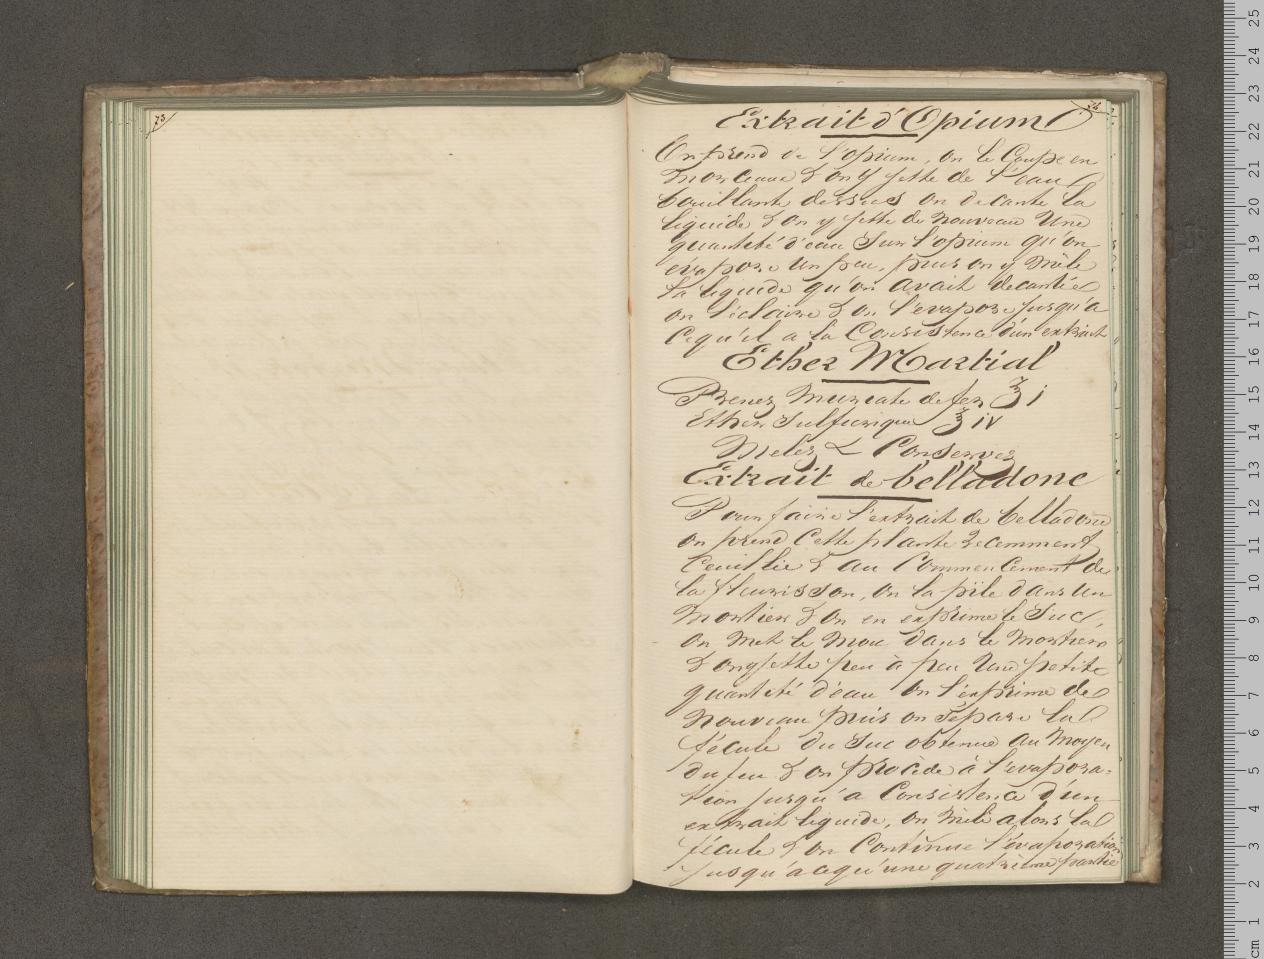 73
74
Extrait d'Opium
On prend de l'opium, on le Coupe en
Morceaux & on y jette de l'eau
bouillante dessus on decante la
liquide & on y jette de nouveau Une
quantité d'eau Sur l'opium qu'on
évapore Un peu, puis on y mèle
la liquide qu'on avait decantée
on l'éclaire & on l'evapore jusqu'a
Cequ'il a la Consistence d'un extrait
Ether Martial
Prenez Muriate de fer ℥ i
Ether Sulfurique ℥ iv
Melez & Conservez
Extrait de belladone
Pour faire l'extrait de belladone
on prend Cette plante recemment
Ceuillie & au Commencement de
la fleurisson, on la pile dans Un
Mortier & on en exprime le Suc,
on Met le Marc dans le Mortier
& on y jette peu à peu Une petite
quantité d'eau on l'exprime de
Nouveau puis on sépare la
fécule du Suc obtenue au Moyen
du feu & on procède à l'evapora-
tion jusqu'a Consistence d'un
extrait liquide, on Mèle alors la
fécule & on Continue l'évaporation
jusqu'à cequ'une quatrième partie
cm 1 2 3 4 5 6 7 8 9 10 11 12 13 14 15 16 17 18 19 20 21 22 23 24 25